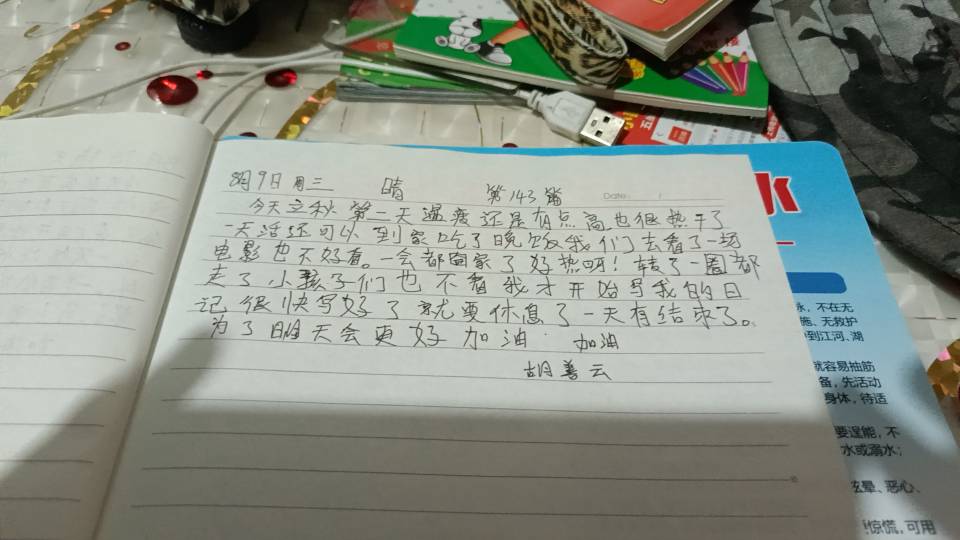 8月9日 周三 晴 第143篇 Date: /
今天立秋第一天温度还是有点高也很热干了
一天活还可以到家吃了晚饭我们去看了一场
电影也不好看。一会都回家了好热呀！转了一圈都
走了小孩子们也不看我才开始写我的日
记很快写好了就要休息了一天有结束了。
为了明天会更好加油·加油
胡善云
水
永，不在无
施、无救护
到江河、湖
就容易抽筋
备，先活动
身体，待适
要逞能，不
水或溺水；
眩晕、恶心、
惊慌，可用